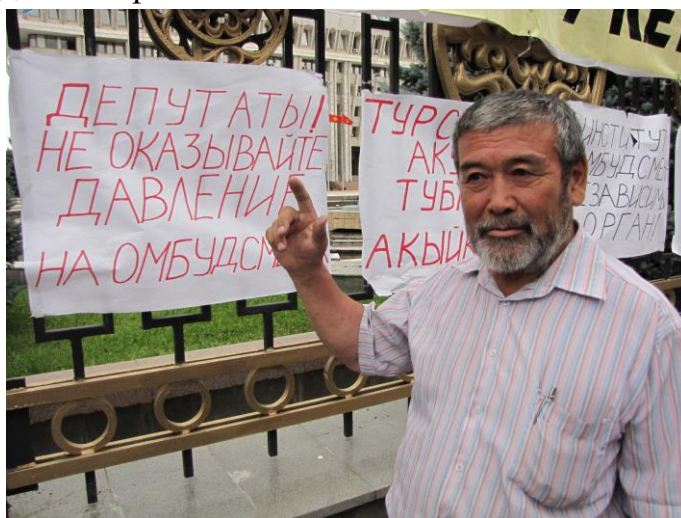 ДЕПУТАТЫ!
НЕ ОКАЗЫВАЙТЕ
ДАВЛЕНИЕ
НА ОМБУДСМ
ТУРС
АК
ТУБ
АКЫЙК
ИНСТИТУТ
МБУДСМЕ
ЗАВИСИМ
ОРГАН!